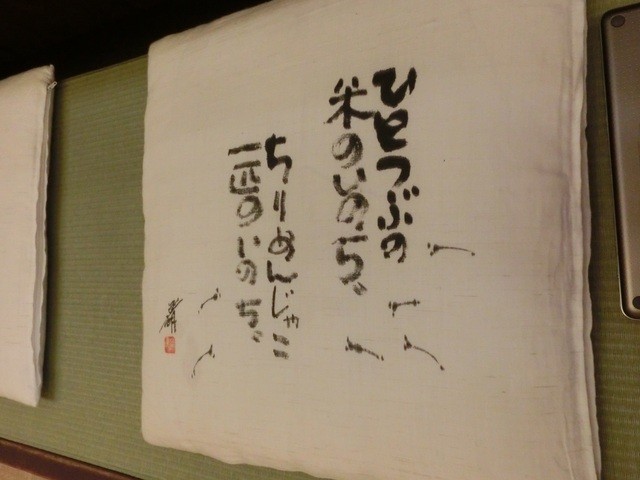 ひとつぶの
米のいのち、
ちりめんじゃこ
一匹のいのち、